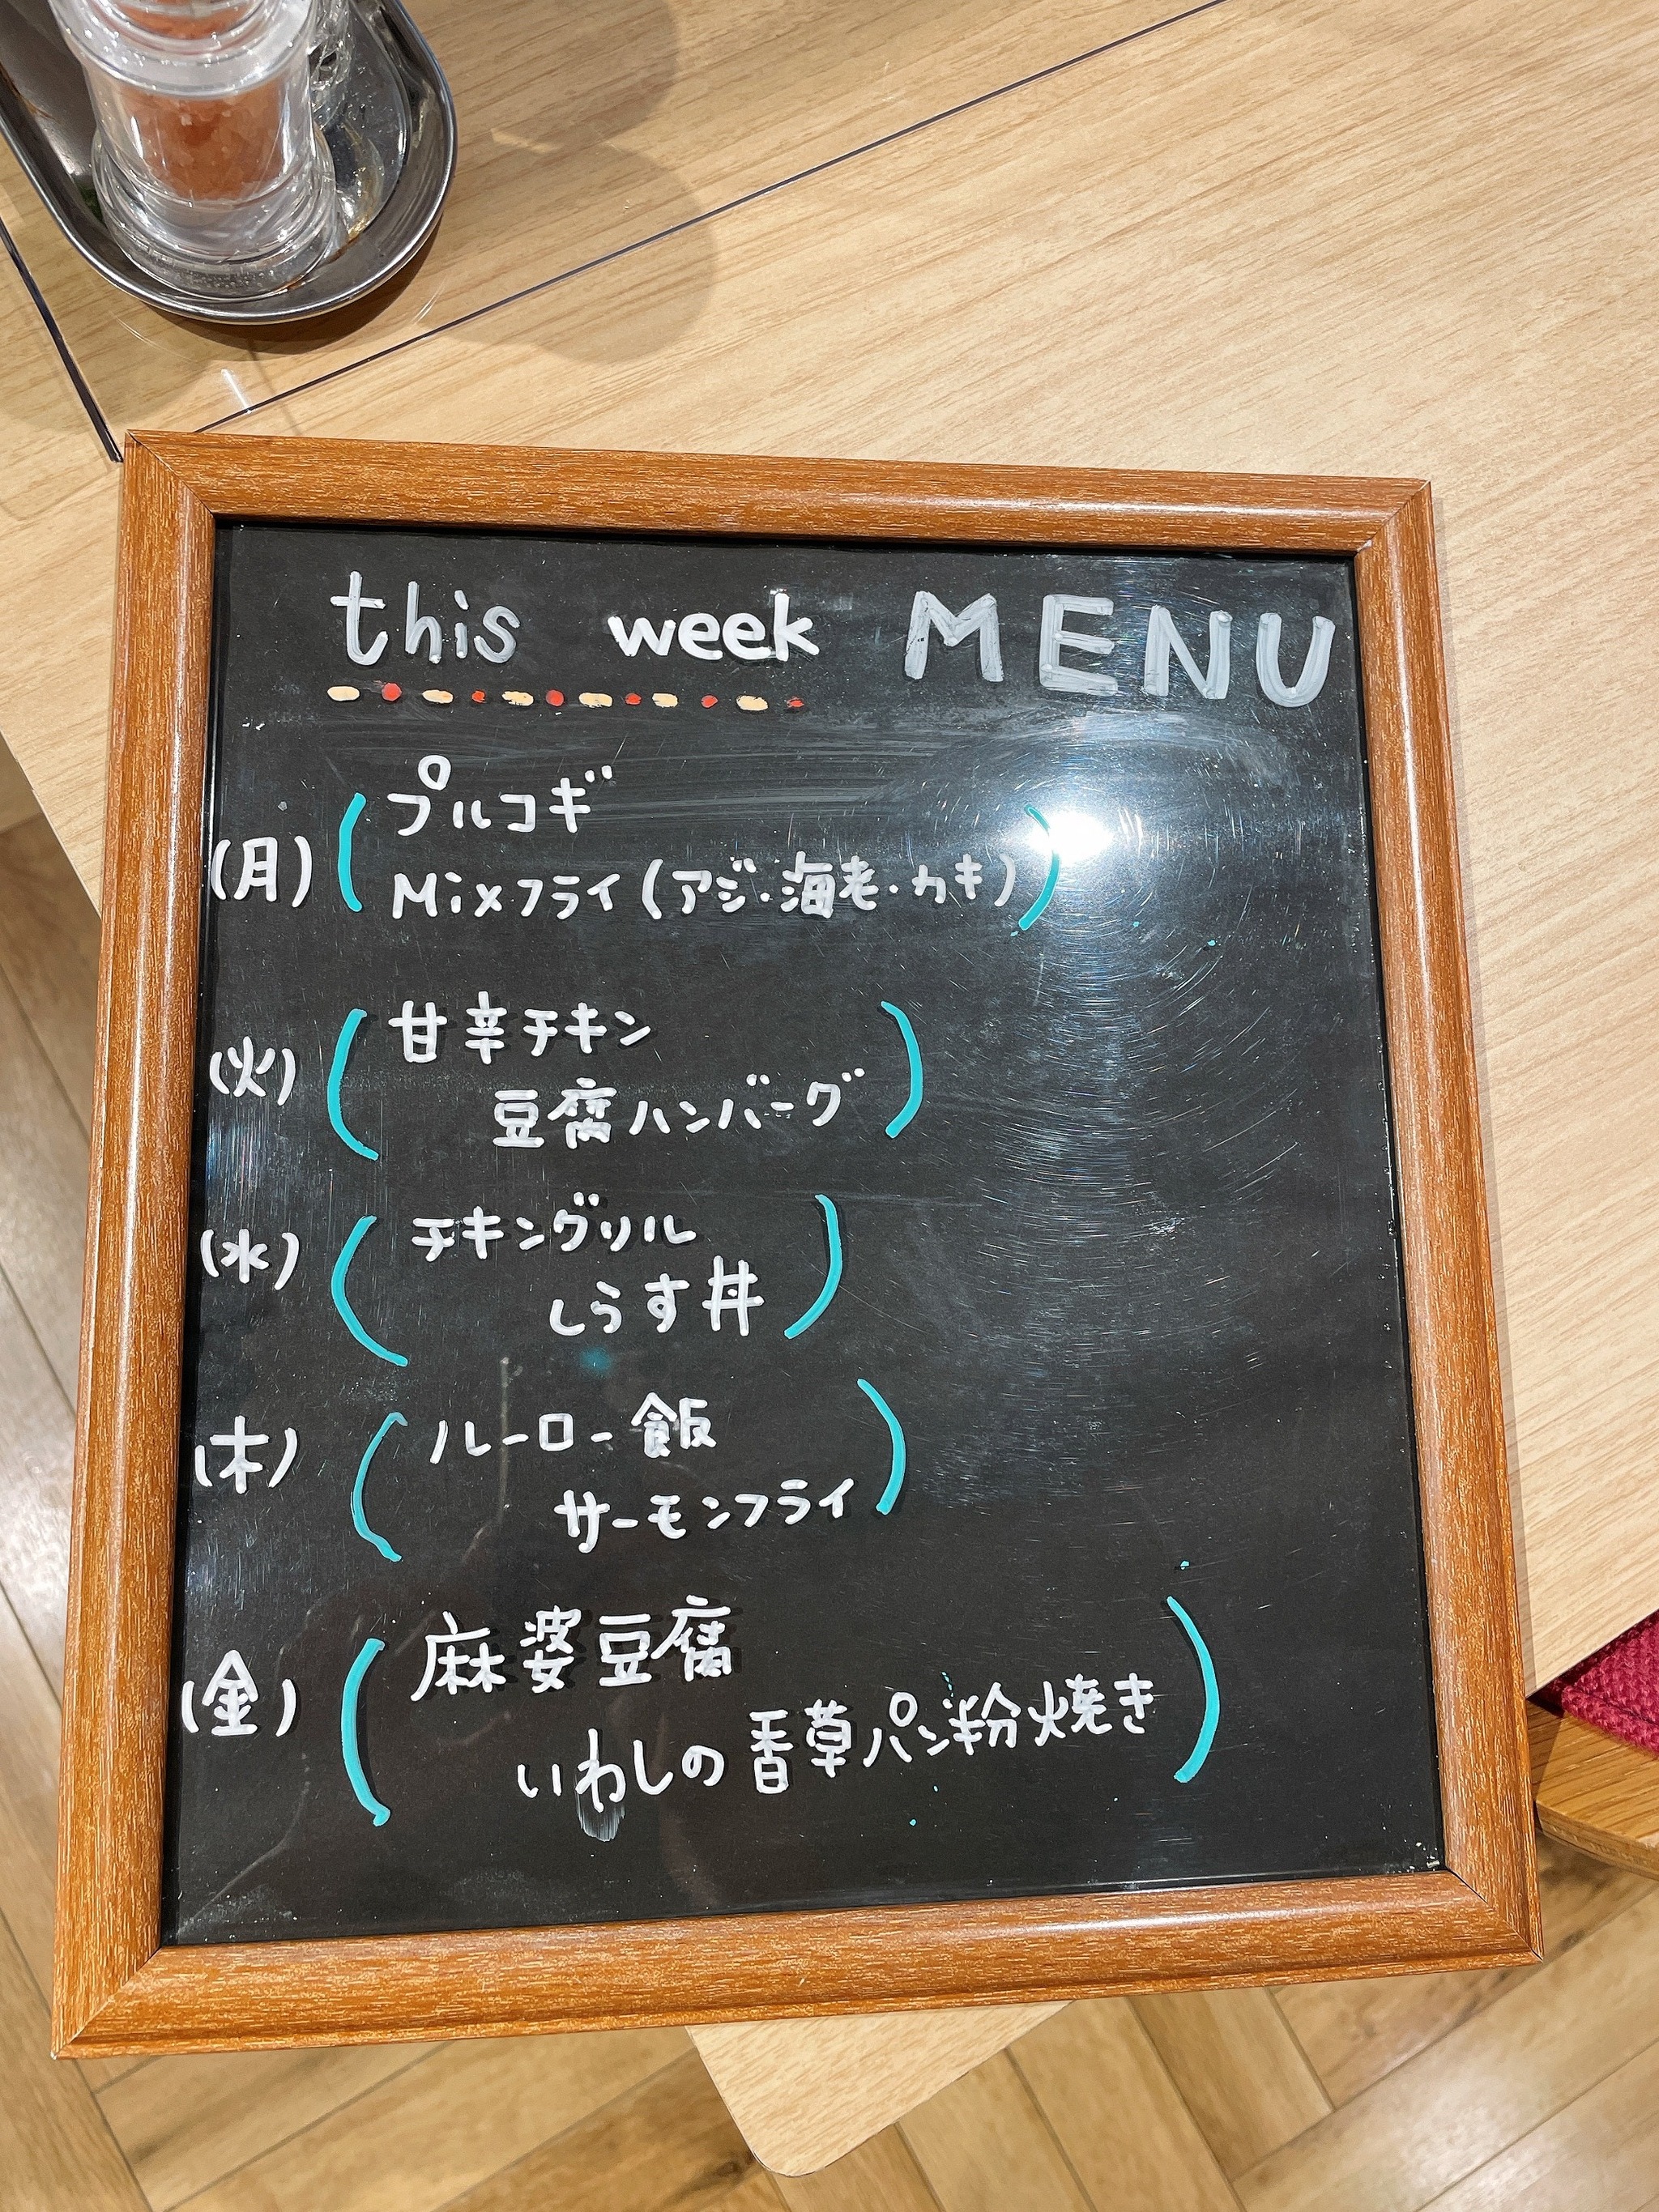 this week MENU
(月) プルコギ
Mixフライ(アジ・海老・カキ)
(火) 甘辛チキン
豆腐ハンバーグ
(水) チキングリル
しらす丼
(木) ルーロー飯
サーモンフライ
(金) 麻婆豆腐
いわしの香草パン粉焼き